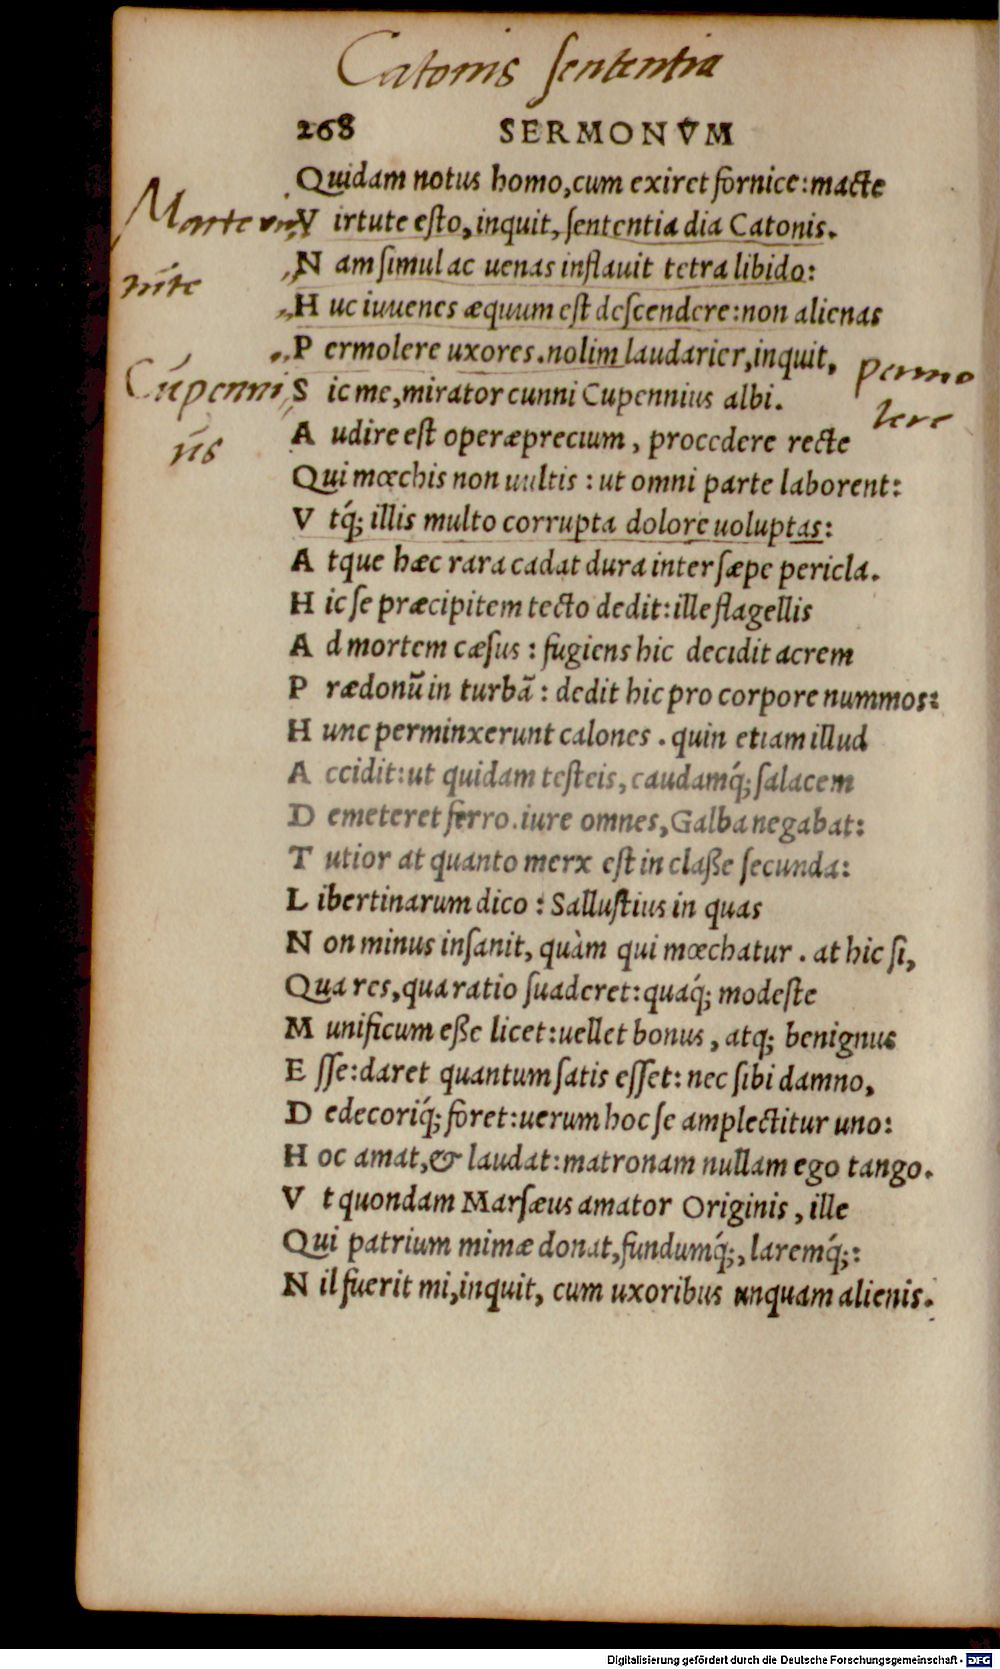 Catonis sententia
268 SERMONVM
Quidam notus homo, cum exiret fornice: macte
Virtute esto, inquit, sententia dia Catonis.
Nam simul ac uenas inflauit tetra libido:
Huc iuuenes æquum est descendere: non alienas
Permolere uxores. nolim laudarier, inquit,
permo
lere
Cupenni
us
Sic me, mirator cunni Cupennius albi.
Audire est operæprecium, procedere recte
Qui mœchis non uultis: ut omni parte laborent:
Vtq́; illis multo corrupta dolore uoluptas:
Atque hæc rara cadat dura inter sæpe pericla.
Hic se præcipitem tecto dedit: ille flagellis
Ad mortem cæsus: fugiens hic decidit acrem
Prædonũ in turbã: dedit hic pro corpore nummos:
Hunc perminxerunt calones. quin etiam illud
Accidit: ut quidam testeis, caudamq́; salacem
Demeteret ferro. iure omnes, Galba negabat:
Tutior at quanto merx est in claße secunda:
Libertinarum dico: Sallustius in quas
Non minus insanit, quàm qui mœchatur. at hic si,
Qua res, qua ratio suaderet: quaq́; modeste
Munificum eße licet: uellet bonus, atq; benignus
Esse: daret quantum satis esset: nec sibi damno,
Dedecoriq́; foret: uerum hoc se amplectitur uno:
Hoc amat, & laudat: matronam nullam ego tango.
Vt quondam Marsæus amator Originis, ille
Qui patrium mimæ donat, fundumq́;, laremq́;:
Nil fuerit mi, inquit, cum uxoribus unquam alienis.
Digitalisierung gefördert durch die Deutsche Forschungsgemeinschaft - DFG